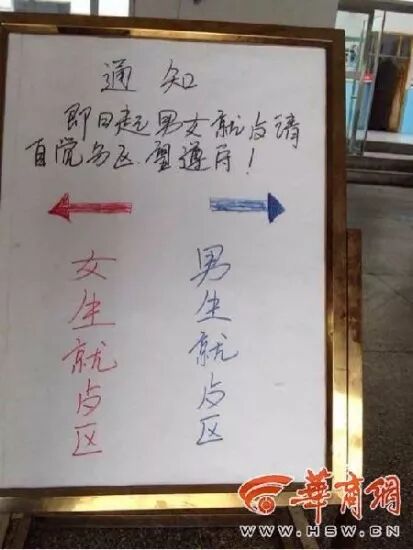 通知
即日起男女就占请
自觉分区.望遵守!
女生就占区
男生就占区
华商网
WWW.HSW.CN